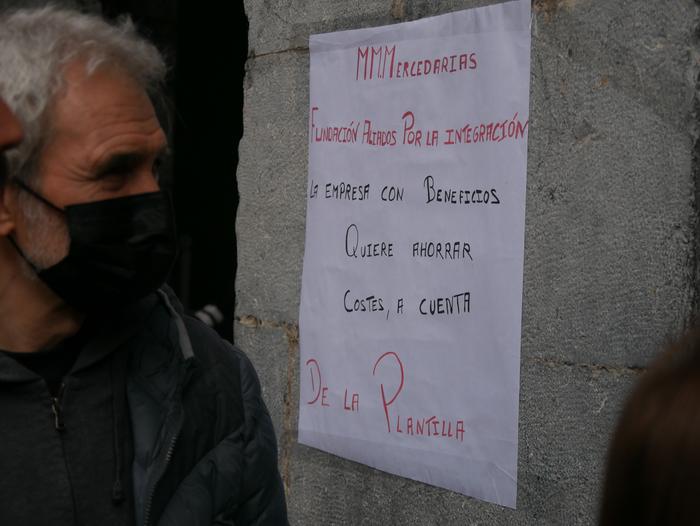 MMMERCEDARIAS
FUNDACIÓN ALIADOS POR LA INTEGRACIÓN
LA EMPRESA CON BENEFICIOS
QUIERE AHORRAR
COSTES, A CUENTA
DE LA PLANTILLA